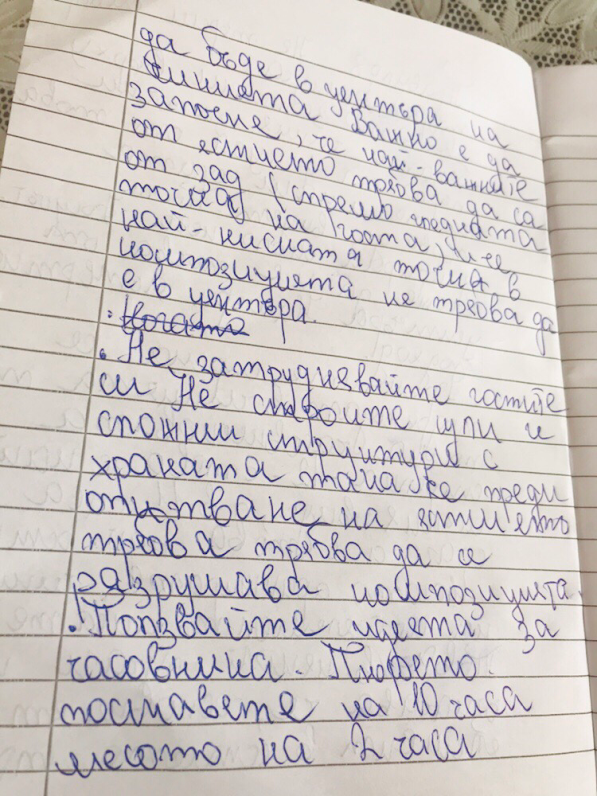 да бъде в центъра на
чинията Важно е да
запомне, че най-важните
от ястието трябва да са
от зад (стрямо гледната
точка) на госта, и не
най-ниската точка в
композицията не трябва да
е в центъра.
· Не затруднявайте гостите
си Не стройте цели и
сложни структури с
храната така же преди
опитване на ястието
трябва трябва да се
разрушава композицията.
· Ползвайте идеята за
часовника. Пюрето
поставете на 10 часа
месото на 2 часа